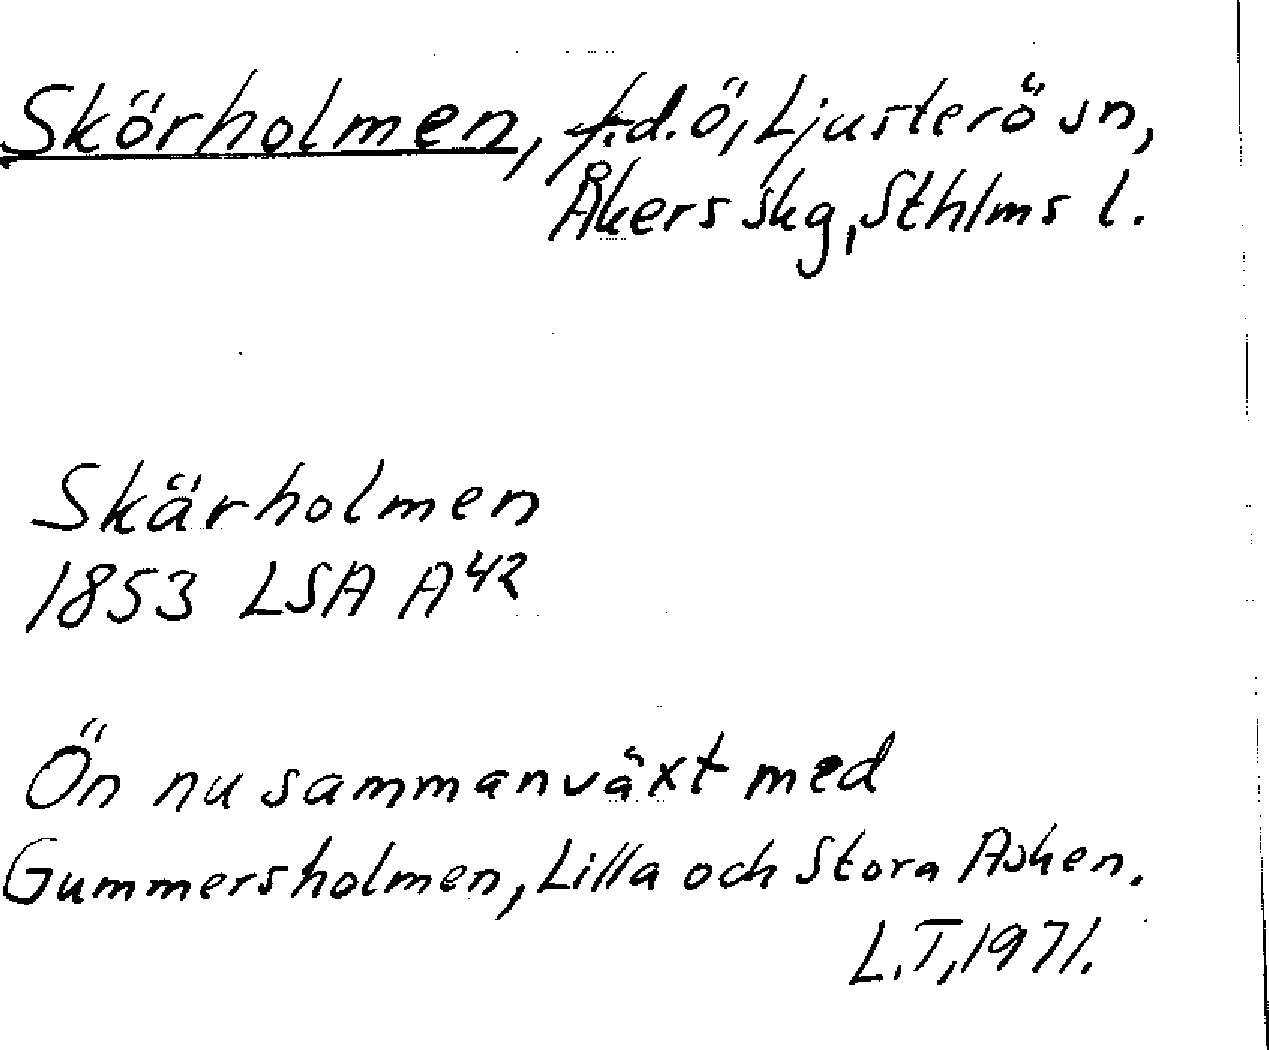 Skörholmen, f.d. ö, Ljusterö sn,
Åkers skg, Sthlms l.
Skärholmen
1853 LSA A42
Ön nu sammanväxt med
Gummersholmen, Lilla och Stora Asken.
L.T, 1971.